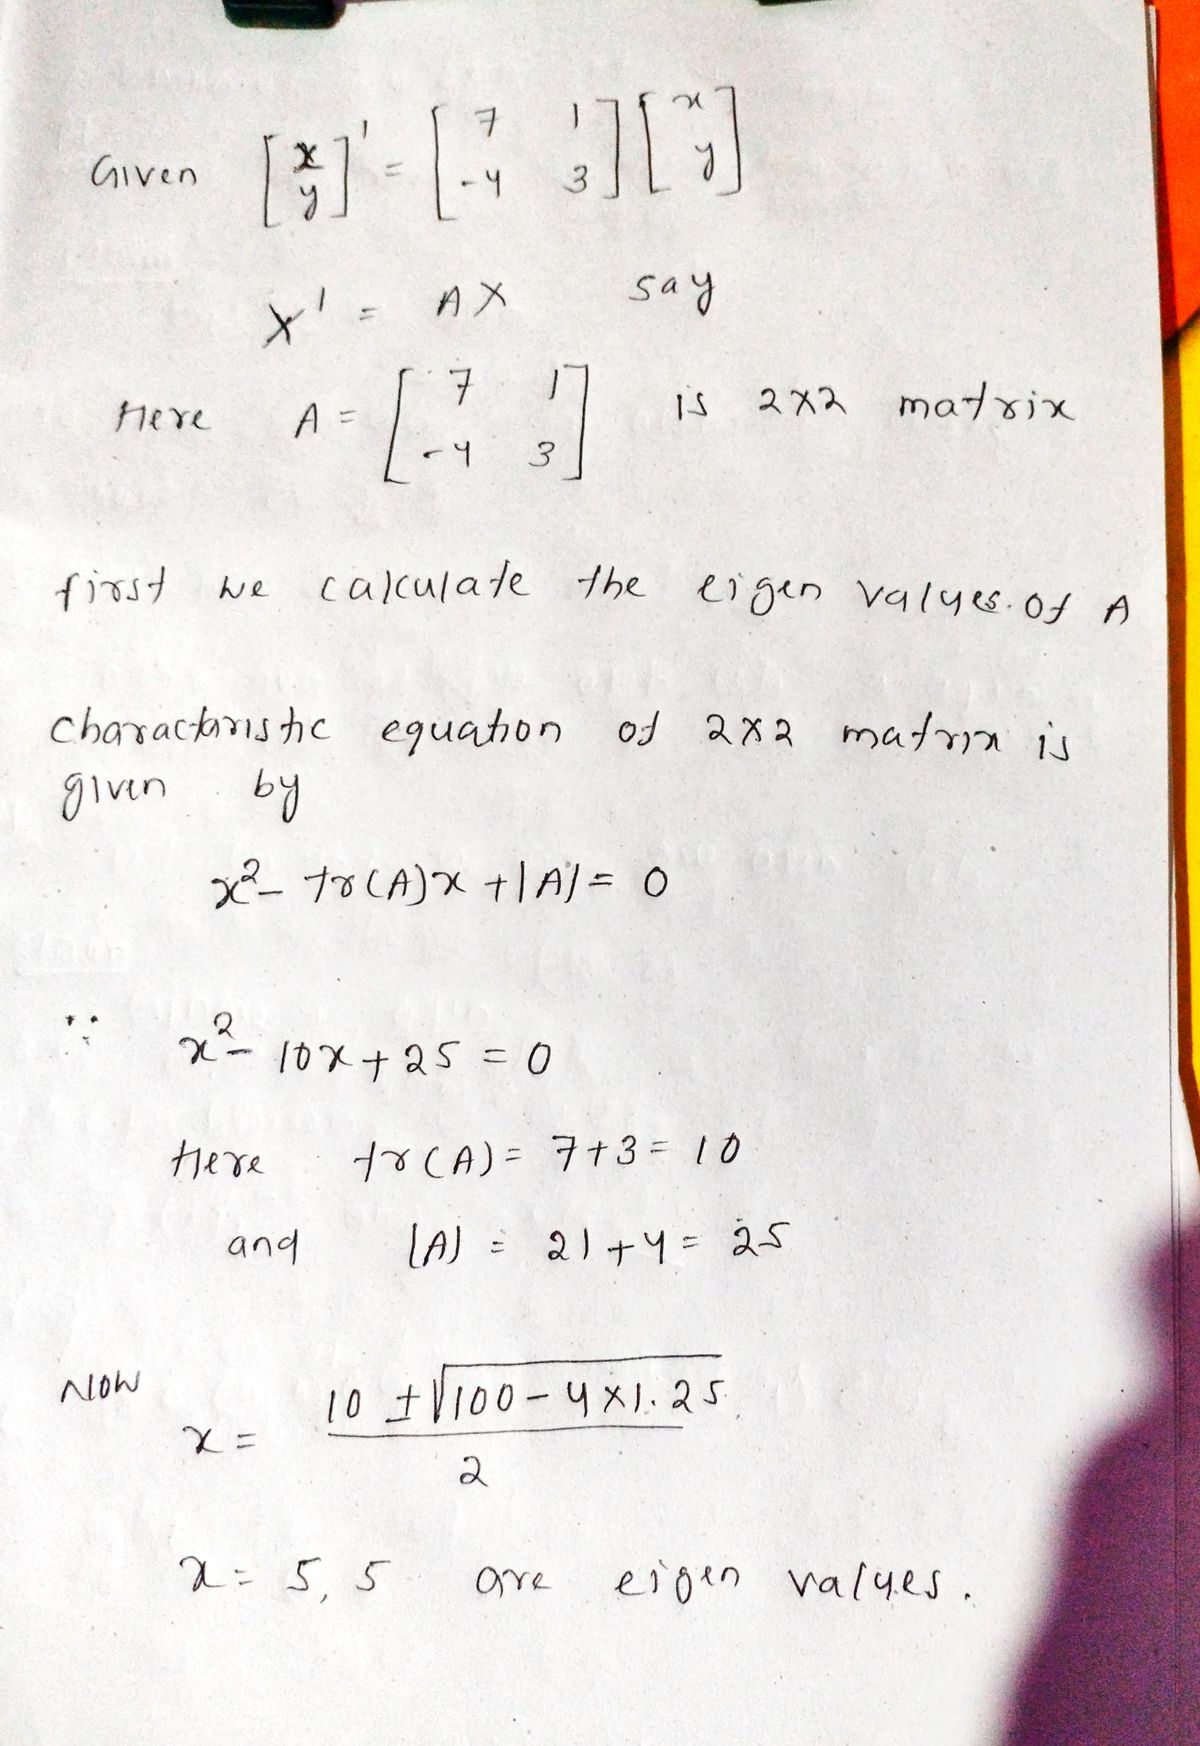 Given [x y]' = [7 1 -4 3] [x y]
X' = AX say
Here A = [7 1 -4 3] is 2x2 matrix
first we calculate the eigen values. of A
charactaristic equation of 2x2 matrix is
given by
x² - tr(A)x + |A| = 0
∵ x² - 10x + 25 = 0
Here tr(A) = 7+3 = 10
and |A| = 21+4 = 25
Now x = (10 ± √(100 - 4×1.25)) / 2
x = 5, 5 are eigen values.